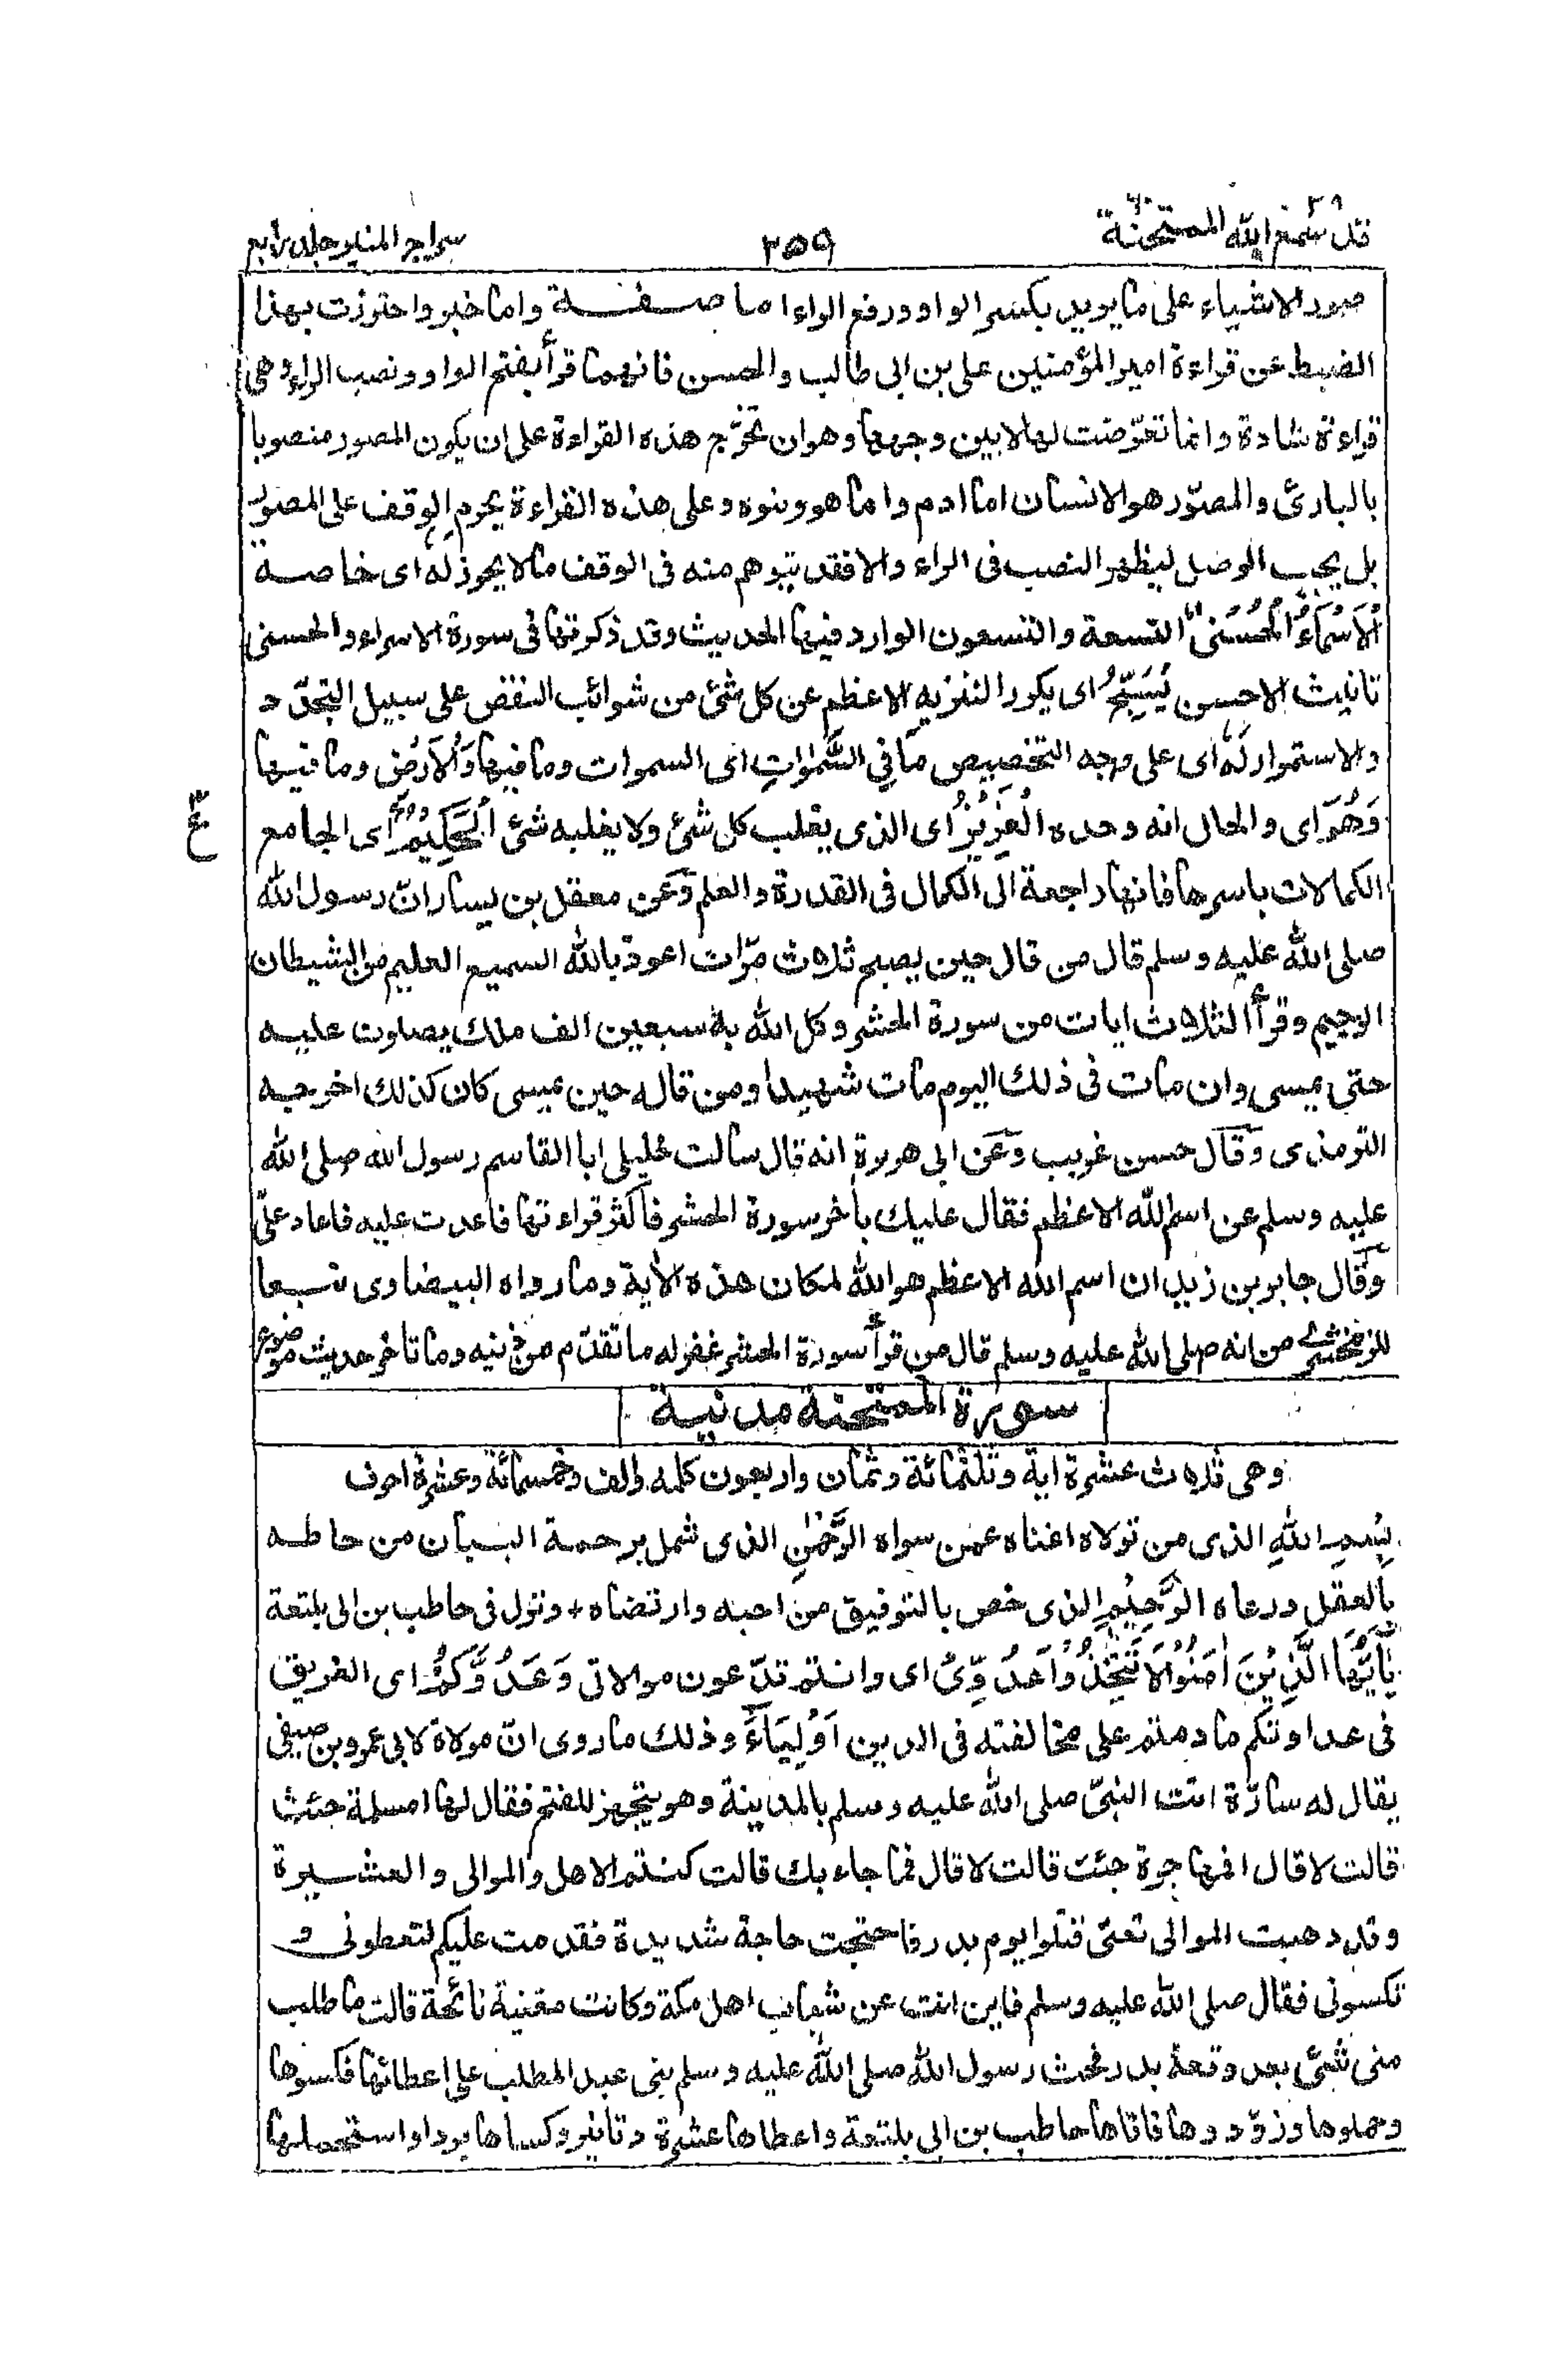 قد سمع الله الممتحنة ٢٥٩ سراج المنير جلد رابع
صور الاشياء على ما يريد بكسر الواو ورفع الراء اما صفة واما خبر واحترزت بهذا
الضبط عن قراءة امير المؤمنين على بن ابى طالب والحسن فانهما قرأ بفتح الواو ونصب الراء وهى
قراءة شاذة وانما تعرّضت لها لابين وجهها وهو ان تخرّج هذه القراءة على ان يكون المصور منصوبا
بالبارئ والمصوّر هو الانسان اما ادم واما هو وبنوه وعلى هذه القراءة يحرم الوقف على المصوّر
بل يجب الوصل ليظهر النصب فى الراء والا فقد يتوهم منه فى الوقف مالا يجوز له اى خاصة
الْاَسْمَاءُ الْحُسْنٰى التسعة والتسعون الوارد فيها الحديث وقد ذكرتها فى سورة الاسراء والحسنى
تانيث الاحسن يُسَبِّحُ اى يكرر التنزيه الاعظم عن كل شئ من شوائب النقص على سبيل التجدّد
والاستمرار لَهٗ اى على وجه التخصيص مَا فِي السَّمٰوٰتِ اى السموات وما فيها وَالْاَرْضِ وما فيها
وَهُوَ اى والحال انه وحده الْعَزِيْزُ اى الذى يغلب كل شئ ولا يغلبه شئ الْحَكِيْمُ اى الجامع
ع
الكمالات باسرها فانها راجعة الى الكمال فى القدرة والعلم وعن معقل بن يسار انّ رسول الله
صلى الله عليه وسلم قال من قال حين يصبح ثلاث مرّات اعوذ بالله السميع العليم من الشيطان
الرجيم وقرأ الثلاث ايات من سورة الحشر وكل الله به سبعين الف ملك يصلون عليه
حتى يمسى وان مات فى ذلك اليوم مات شهيدا ومن قاله حين يمسى كان كذلك اخرجه
الترمذى وقال حسن غريب وعن ابى هريرة انه قال سالت خليلى ابا القاسم رسول الله صلى الله
عليه وسلم عن اسم الله الاعظم فقال عليك بأخر سورة الحشر فأكثر قراءتها فاعدت عليه فاعاد علىّ
وقال جابر بن زيد ان اسم الله الاعظم هو الله لمكان هذه الأية وما رواه البيضاوى تبعا
للزمخشرى من انه صلى الله عليه وسلم قال من قرأ سورة الحشر غفر له ما تقدّم من ذنبه وما تاخر حديث موضوع
سورة الممتحنة مدنية
وهى ثلاث عشرة اية وثلثمائة وثمان واربعون كلمه والف وخمسمائة وعشرة احرف
بِسْمِ اللهِ الذى من تولاه اغناه عمن سواه الرَّحْمٰنِ الذى شمل برحمة البيان من حاطه
بالعقل ورعاه الرَّحِيْمِ الذى خص بالتوفيق من احبه وارتضاه + ونزل فى حاطب بن ابى بلتعة
يٰٓاَيُّهَا الَّذِيْنَ اٰمَنُوْا لَا تَتَّخِذُوْا عَدُوِّىْ اى وانتم تدّعون موالاتى وَعَدُوَّكُمْ اى الفريق
فى عداوتكم ما دمتم على مخالفته فى الدين اَوْلِيَآءَ وذلك ما روى انّ مولاة لابى عمرو بن صيفى
يقال له سارّة اتت النبىّ صلى الله عليه وسلم بالمدينة وهو يتجهز للفتح فقال لها امسلمة جئت
قالت لا قال افمهاجرة جئت قالت لا قال فما جاء بك قالت كنتم الاهل والموالى والعشيرة
وقد ذهبت الموالى تعنى قتلوا يوم بدر فاحتجت حاجة شديدة فقدمت عليكم لتعطونى و
تكسونى فقال صلى الله عليه وسلم فاين انت عن شباب اهل مكة وكانت مغنية نائحة قالت ما طلب
منى شئ بعد وقعة بدر فحث رسول الله صلى الله عليه وسلم بنى عبد المطلب على اعطائها فكسوها
وحملوها وزوّدوها فاتاها حاطب بن ابى بلتعة واعطاها عشرة دنانير وكساها بردا واستحملها